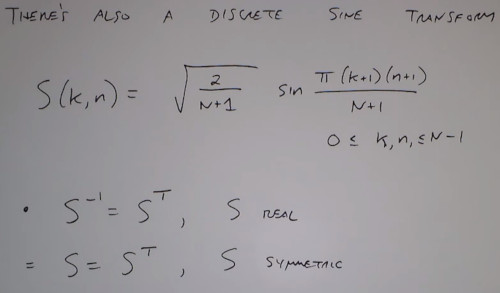 THERE'S ALSO A DISCRETE SINE TRANSFORM
S(k,n) = √(2/(N+1)) sin (π(k+1)(n+1))/(N+1)
0 ≤ k,n, ≤ N-1
• S⁻¹ = Sᵀ, S REAL
= S = Sᵀ, S SYMMETRIC